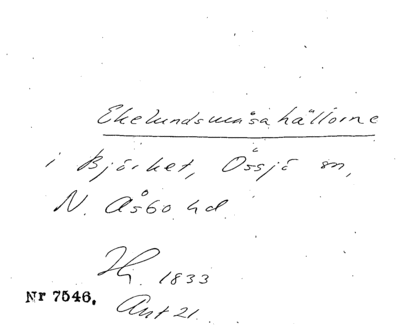 Ekelundsmåsahällorne
i Björket, Össjö sn,
N. Åsbo hd.
Hj. 1833
Nr 7546.
Ant 21.